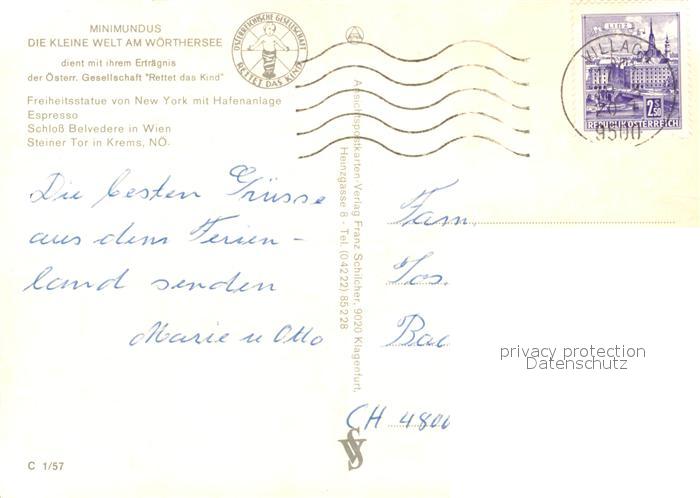 MINIMUNDUS
DIE KLEINE WELT AM WÖRTHERSEE
dient mit ihrem Erträgnis
der Österr. Gesellschaft "Rettet das Kind"
Freiheitsstatue von New York mit Hafenanlage
Espresso
Schloß Belvedere in Wien
Steiner Tor in Krems, NÖ.
ÖSTERREICHISCHE GESELLSCHAFT
RETTET DAS KIND
LINZ
VILLACH
2.50
REPUBLIK ÖSTERREICH
9500
Ansichtspostkarten-Verlag Franz Schilcher, 9020 Klagenfurt,
Heinzgasse 8 - Tel. (04222) 85228
Die besten Grüsse
aus dem Ferien-
land senden
Marie u Otto
Fam.
Jos.
Bac
CH 4800
privacy protection
Datenschutz
C 1/57